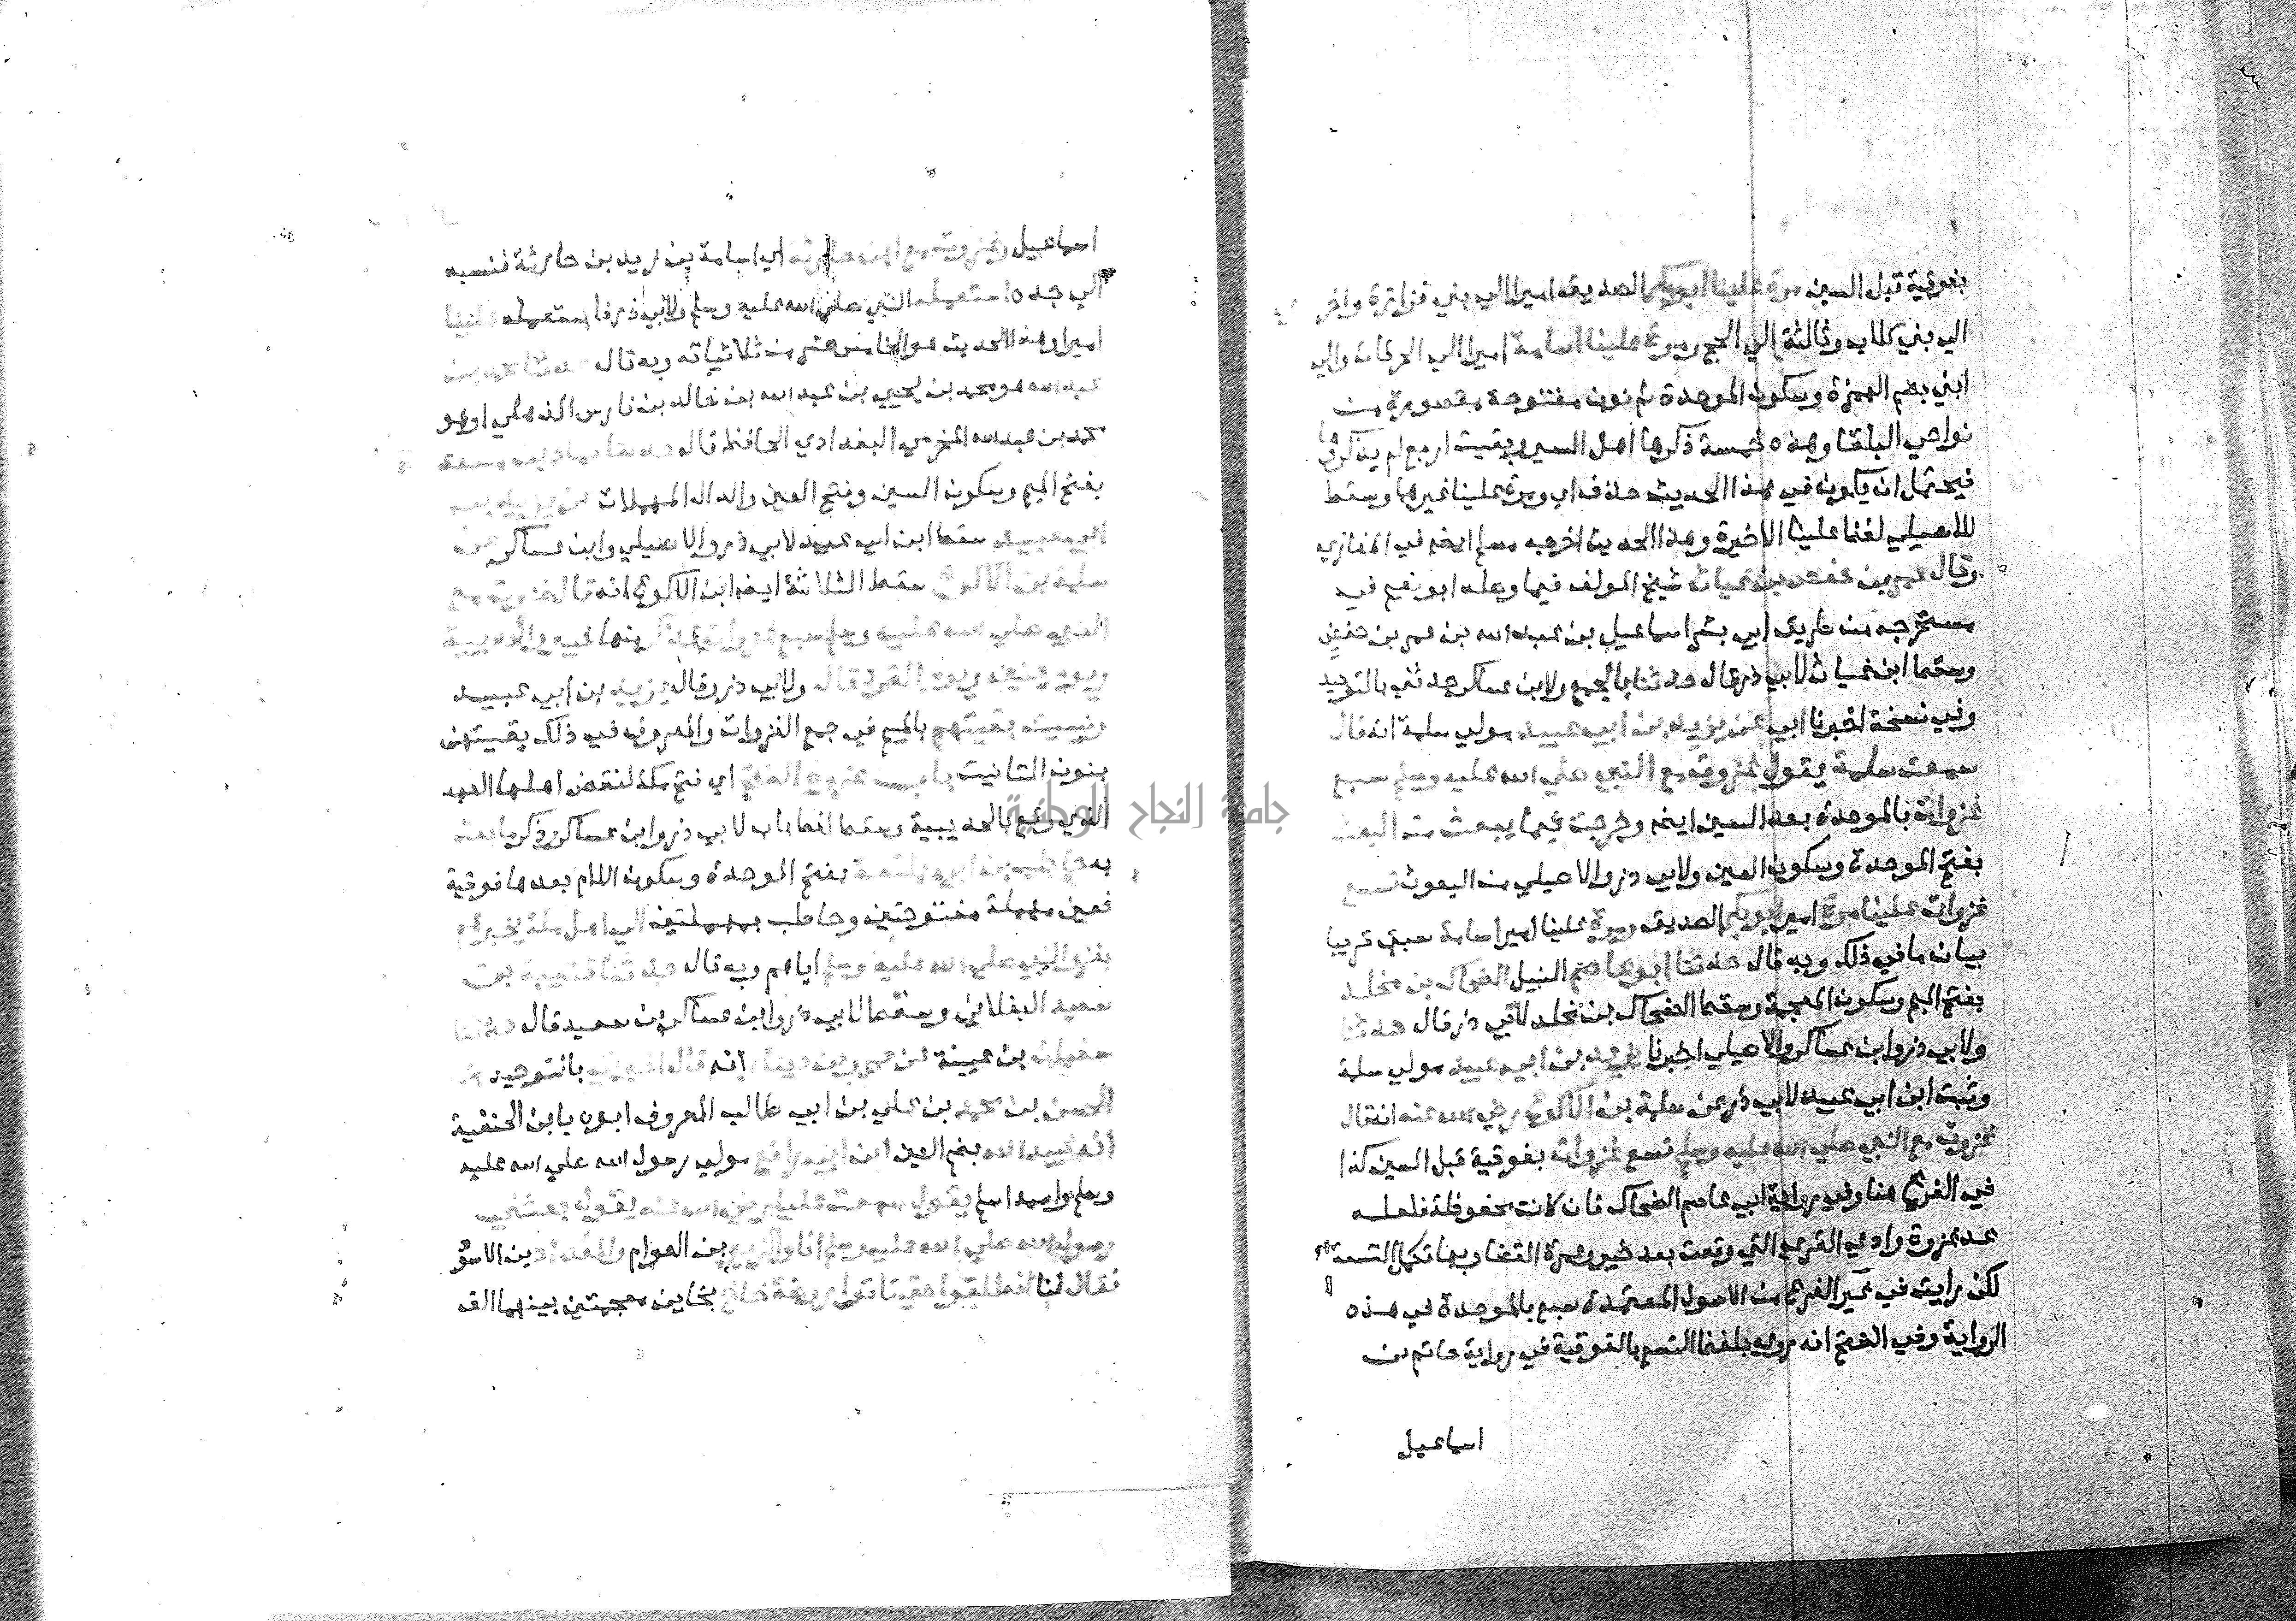 بفوقية قبل السين مرة علينا ابو بكر الصديق اميرا الي بني فزارة واخري
الي بني كلاب وثالثة الي الحج ومرة علينا اسامة اميرا الي الحرقات والي
ابني بضم الهمزة وسكون الموحدة ثم نون مفتوحة مقصورة من
نواحي البلقا وهذه خمسة ذكرها اهل السير وبقيت اربع لم يذكروها
فيحتمل ان يكون في هذا الحديث حذف اي ومرة علينا غيرهما وسقط
للاصيلي لفظ علينا الاخيرة وهذا الحديث اخرجه مسلم ايضه في المغازي
وقال عمر بن حفص بن غياث شيخ المولف فيما وصله ابو نعيم في
مستخرجه من طريق ابي بشر اسماعيل بن عبد الله بن عمر بن حفص
وسقط ابن غياث لابي ذر قال حدثنا بالجمع ولابن عساكر حدثني بالتوحيد
وفي نسخة اخبرنا ابي عن يزيد بن ابي عبيد مولي سلمة انه قال
سمعت سلمة يقول غزوت مع النبي صلي الله عليه وسلم سبع
غزوات بالموحدة بعد السين ايضه وخرجت فيما يبعث من البعث
بفتح الموحدة وسكون العين ولابي ذر والاصيلي من البعوث تسع
غزوات علينا مرة امير ابو بكر الصديق ومرة علينا امير اسامة سبق قريبا
بيان ما في ذلك وبه قال حدثنا ابو عاصم النبيل الضحاك بن مخلد
بفتح الميم وسكون المعجمة وسقط الضحاك بن مخلد لابي ذر قال حدثنا
ولابي ذر وابن عساكر والاصيلي اخبرنا يزيد بن ابي عبيد مولي سلمة
وثبت ابن ابي عبيد لابي ذر عن سلمة بن الاكوع رضي الله عنه انه قال
غزوت مع النبي صلي الله عليه وسلم تسع غزوات بفوقية قبل السين كذا
في الفرع هنا وفي رواية ابي عاصم الضحاك فان كانت محفوظة فلعله
عد غزوة وادي القري التي وقعت بعد خيبر وعمرة القضا وبهما تكمل التسعة
لكن رايت في غير الفرع من الاصول المعتمدة سبع بالموحدة في هذه
الرواية وفي الفتح انه روي بلفظ التسع بالفوقية في رواية حاتم بن
اسماعيل
اسماعيل وغزوت مع ابن حارثة اي اسامة بن زيد بن حارثة فنسبه
الي جده استعمله النبي صلي الله عليه وسلم ولابي ذر فاستعمله علينا
اميرا وهذا الحديث هو الخامس عشر من ثلاثياته وبه قال حدثنا محمد بن
عبد الله هو محمد بن يحيي بن عبد الله بن خالد بن فارس الذهلي او هو
محمد بن عبد الله المخرمي البغدادي الحافظ قال حدثنا حماد بن مسعدة
بفتح الميم وسكون السين وفتح العين والدال المهملات عن يزيد بن
ابي عبيد سقط ابن ابي عبيد لابي ذر والاصيلي وابن عساكر عن
سلمة بن الاكوع سقط الثلاثة ايضه ابن الاكوع انه قال غزوت مع
النبي صلي الله عليه وسلم سبع غزوات فذكر منها خيبر والحديبية
ويوم حنين ويوم القرد قال ولابي ذر وقال يزيد بن ابي عبيد
ونسيت بقيتهم بالميم في جمع الغزوات والمعروف في ذلك بقيتهن
بنون التانيث باب غزوة الفتح اي فتح مكة لنقض اهلها العهد
الذي وقع بالحديبية وسقط لفظ باب لابي ذر وابن عساكر وذكر ما بعث
به حاطب بن ابي بلتعة بفتح الموحدة وسكون اللام بعدها فوقية
فعين مهملة مفتوحتين وحاطب بمهملتين الي اهل مكة يخبرهم
بغزو النبي صلي الله عليه وسلم اياهم وبه قال حدثنا قتيبة بن
سعيد البغلاني وسقط لابي ذر وابن عساكر بن سعيد قال حدثنا
سفيان بن عيينة عن عمرو بن دينار انه قال اخبرني بالتوحيد
الحسن بن محمد بن علي بن ابي طالب المعروف ابوه بابن الحنفية
انه عبيد الله بضم العين ابن ابي رافع مولي رسول الله صلي الله عليه
وسلم واسمه اسلم يقول سمعت عليا رضي الله عنه يقول بعثني
رسول الله صلي الله عليه وسلم انا والزبير بن العوام والمقداد بن الاسود
فقال لنا انطلقوا حتي تاتوا روضة خاخ بخايين معجمتين بينهما الف
جامعة النجاح الوطنية